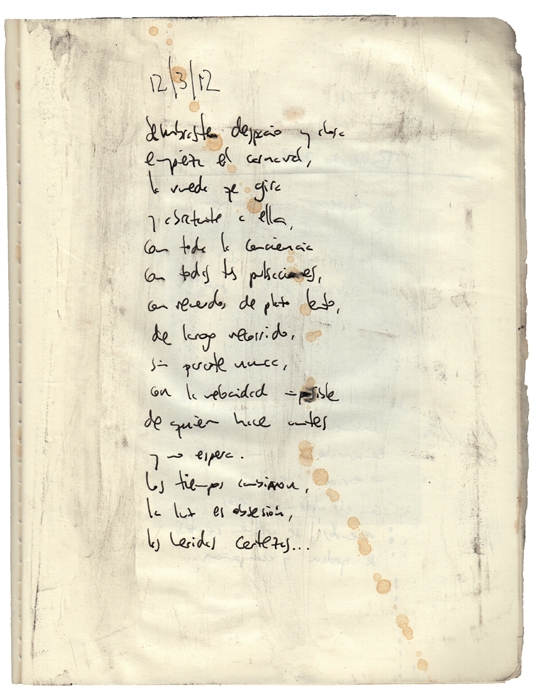 12/3/12
despacio y ahora
empieza el carnaval,
la rueda que gira
y abrázate a ella,
con toda la conciencia
con todas tus pulsaciones,
con recuerdos de plato lento,
de largo recorrido,
sin pararte nunca,
con la velocidad imposible
de quien hace antes
y no espera.
los tiempos cambiaron,
la luz es obsesión,
las heridas certezas...